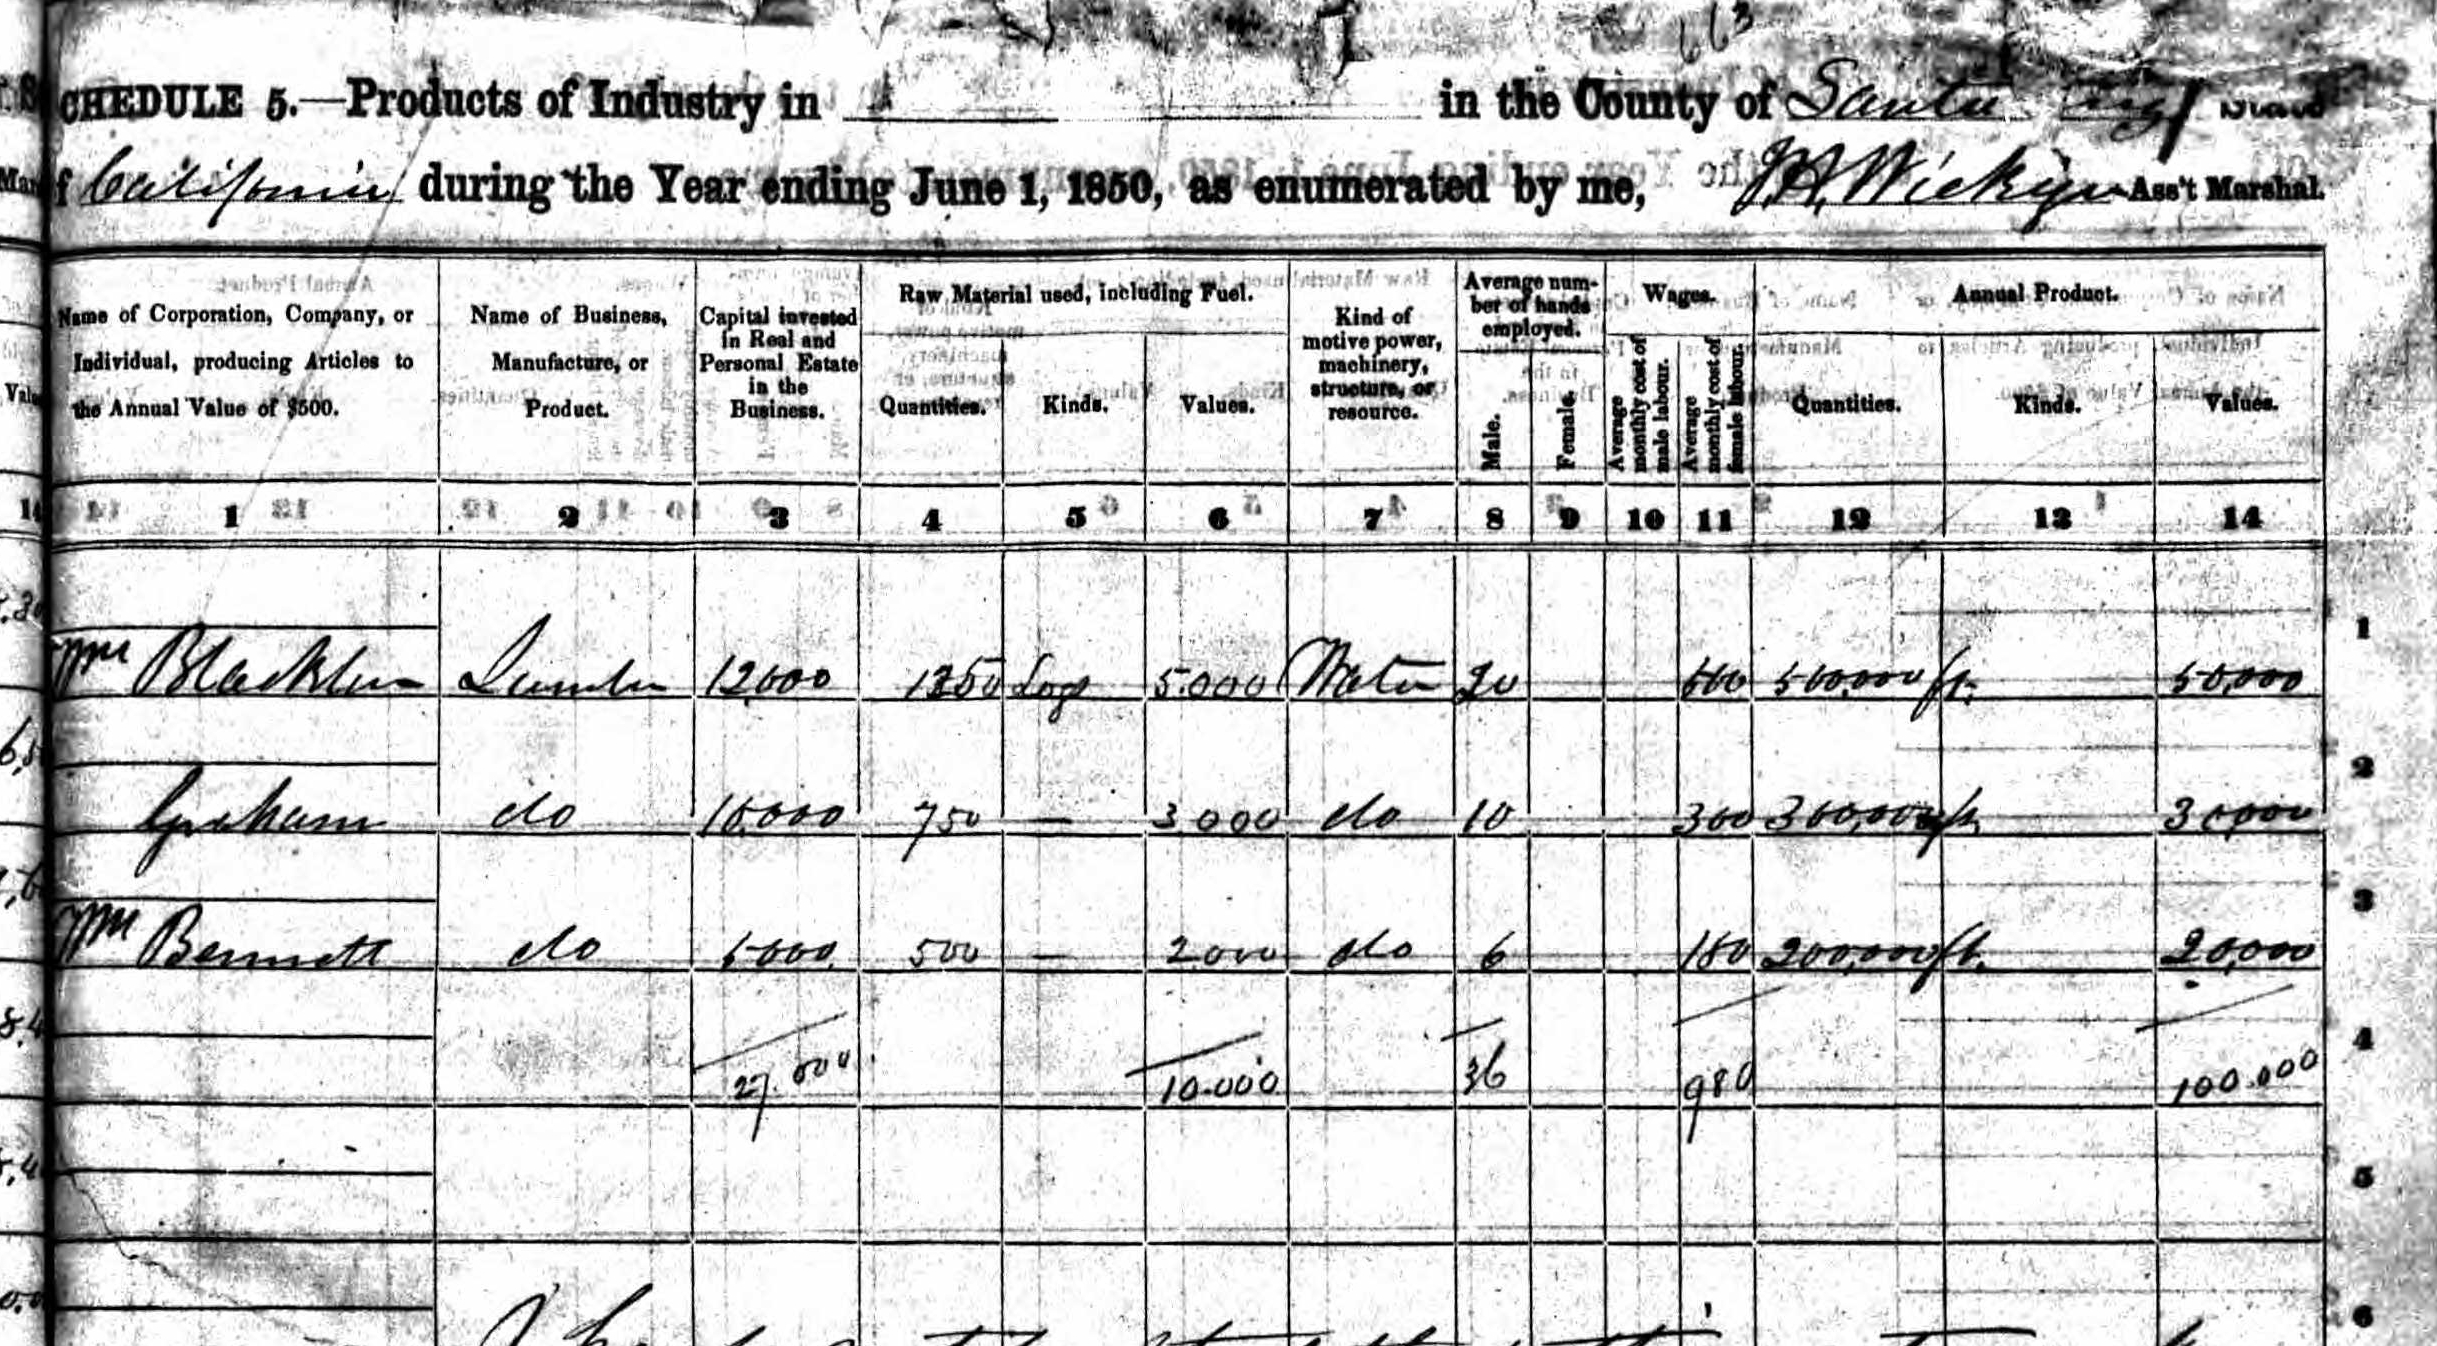 SCHEDULE 5.—Products of Industry in in the County of Santa Cruz State
of California during the Year ending June 1, 1850, as enumerated by me, Ass't Marshal.
Name of Corporation, Company, or Individual, producing Articles to the Annual Value of $500. Name of Business, Manufacture, or Product. Capital invested in Real and Personal Estate in the Business. Raw Material used, including Fuel. Quantities. Kinds. Values. Kind of motive power, machinery, structure, or resource. Average number of hands employed. Male. Female. Wages. Average monthly cost of male labour. Average monthly cost of female labour. Annual Product. Quantities. Kinds. Values.
1 2 3 4 5 6 7 8 9 10 11 12 13 14
Wm Blackburn Lumber 12000 1250 Logs 5.000 Water 20 500 500,000 ft. 50,000 1
Graham do 10.000 750 — 3000 do 10 300 300,000 ft. 30,000 2
Wm Bennett do 5000 500 — 2000 do 6 180 200,000 ft. 20,000 3
27.000 10.000 36 980 100.000 4
5
6